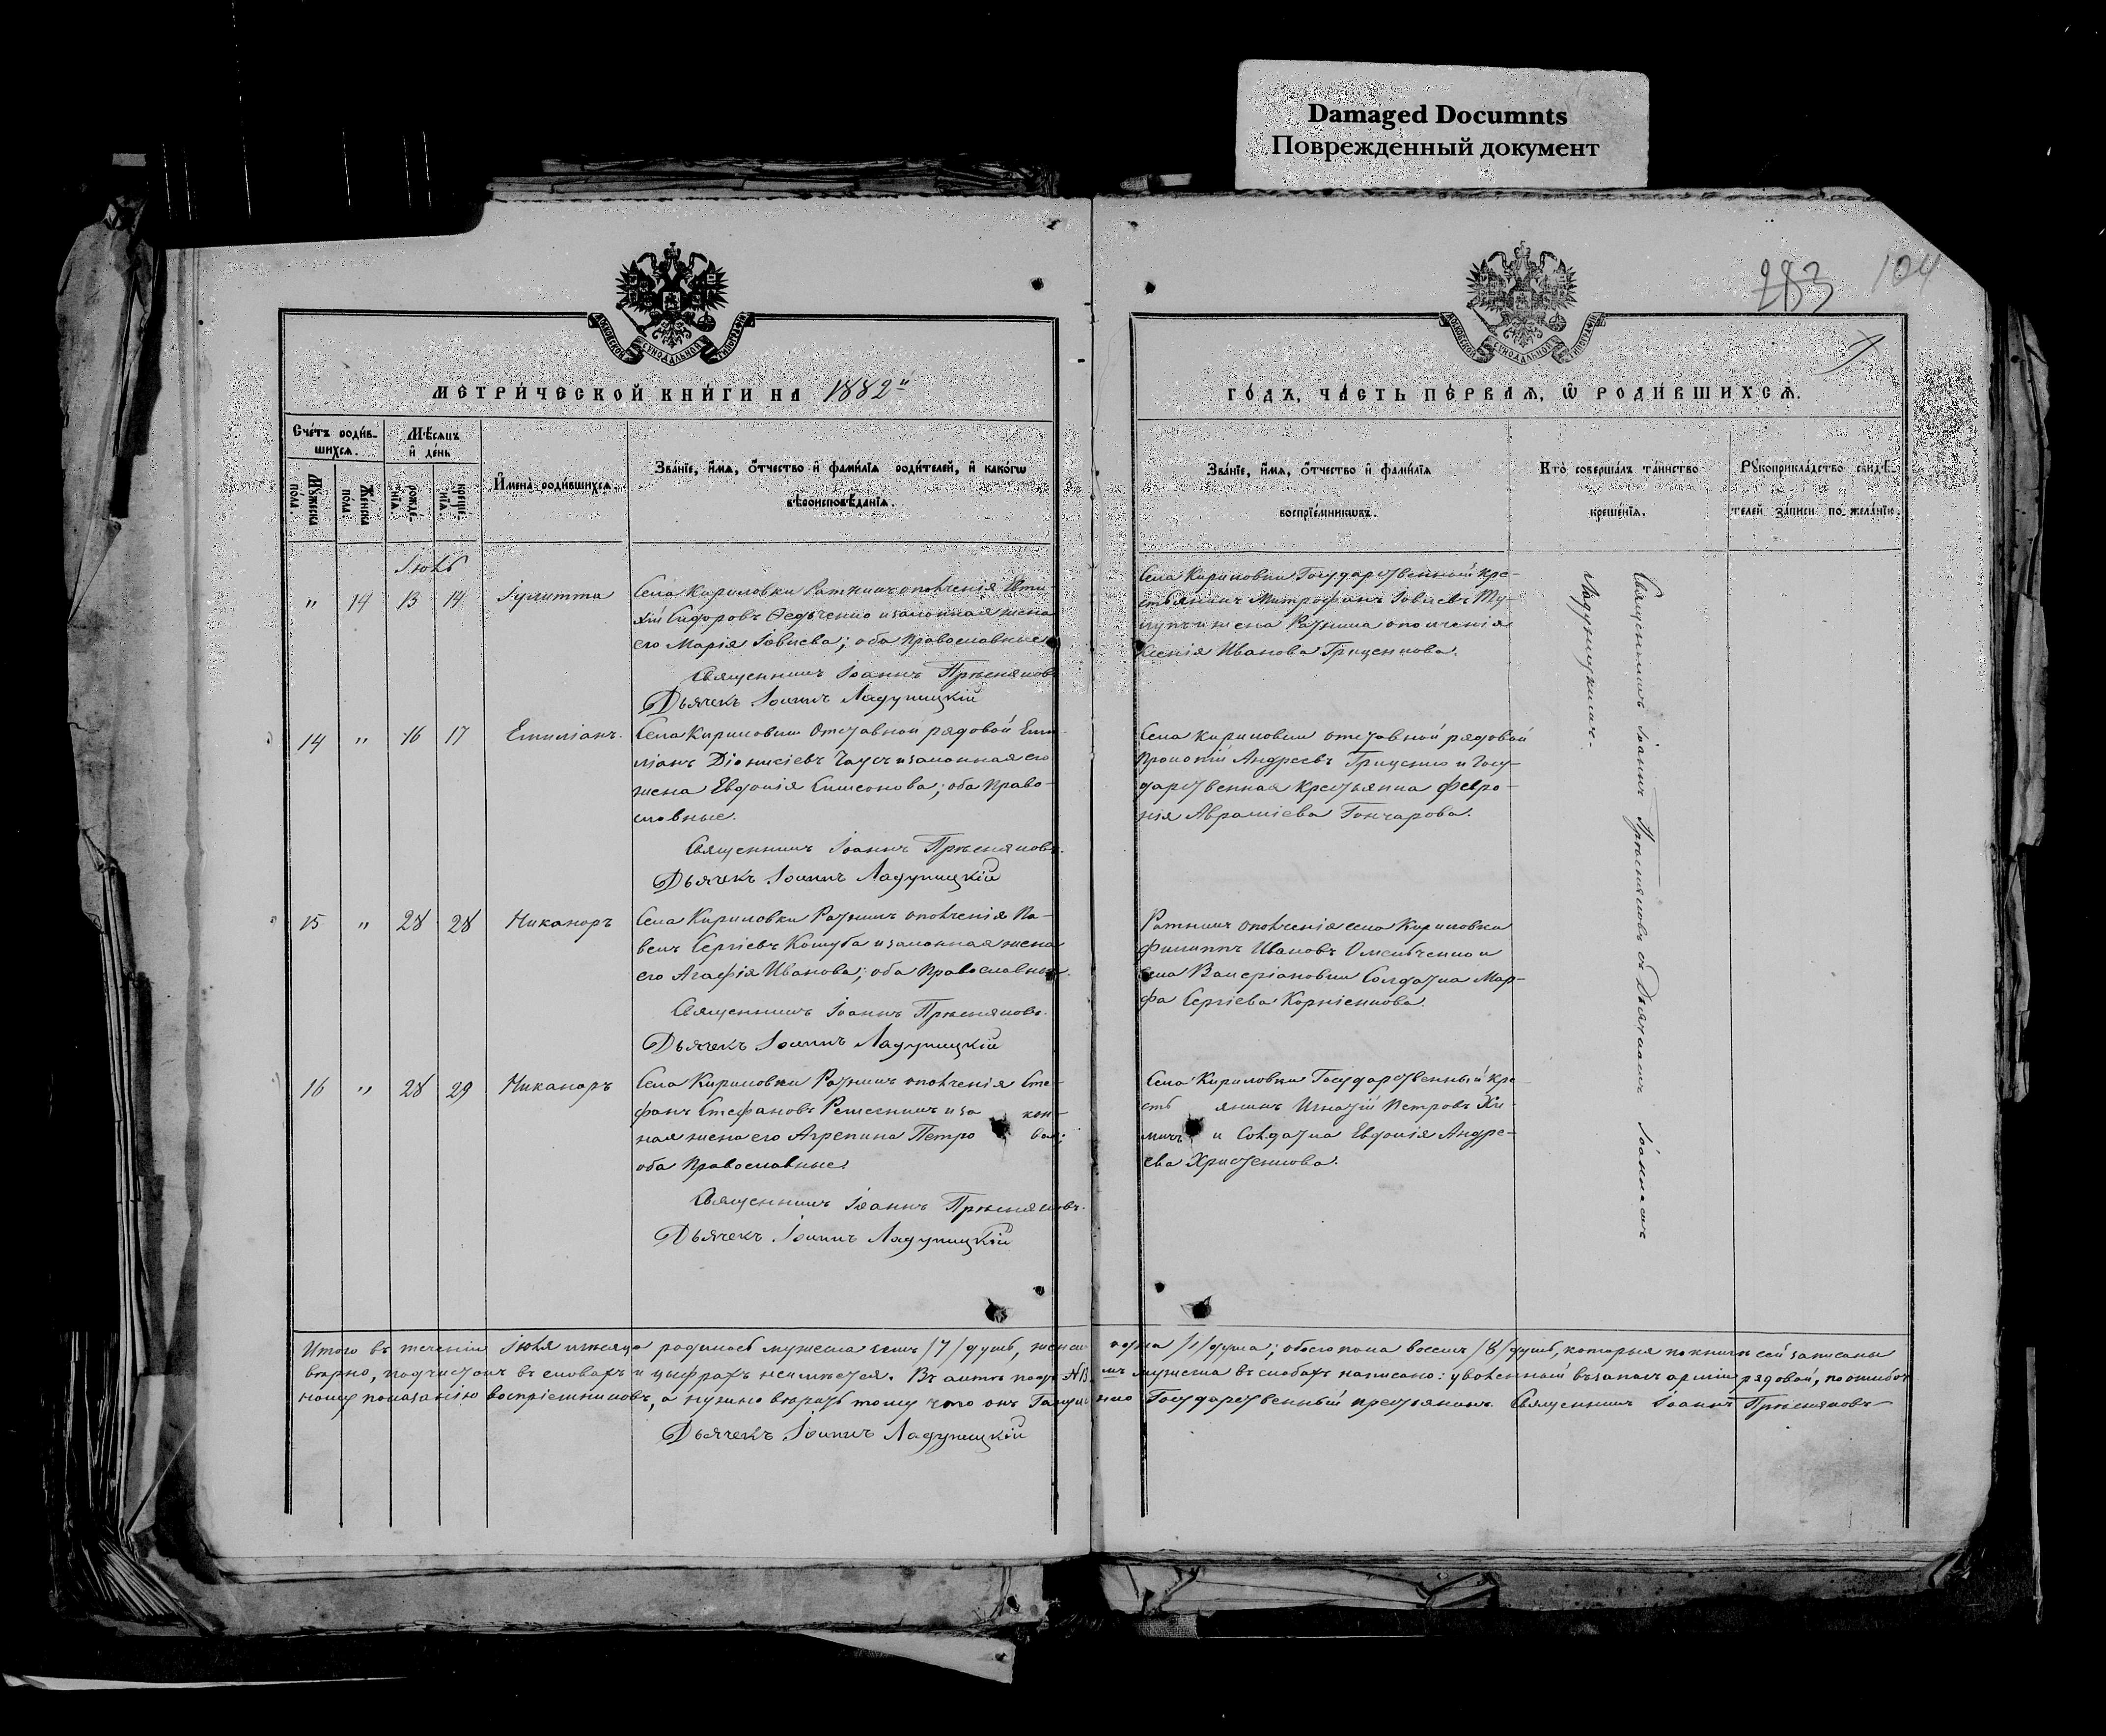 Damaged Documnts
Поврежденный документ
283 104
МОСКОВСКОЙ СѴНОДАЛЬНОЙ ТИПОГРАФІИ
МОСКОВСКОЙ СѴНОДАЛЬНОЙ ТИПОГРАФІИ
МЕТРИ́ЧЕСКОЙ КНИ́ГИ НА 1882й
ГО́ДЪ, ЧА́СТЬ ПЕ́РВАѦ, Ѡ РОДИ́ВШИХСѦ.
Сче́тъ роди́в-
шихсѧ.
Мѣ́сѧцъ
и҆ де́нь
Мꙋ́жеска
по́ла.
Же́нска
по́ла.
рожде́-
нїѧ.
креще́-
нїѧ.
И҆мена̀ роди́вшихсѧ.
Зва́нїе, и҆́мѧ, ѻ҆́тчество и҆ фами́лїѧ роди́телей, и҆ како́гѡ
вѣроисповѣ́данїѧ.
Зва́нїе, и҆́мѧ, ѻ҆́тчество и҆ фами́лїѧ
воспрїе́мникѡвъ.
Кто̀ соверша́лъ та́инство
креще́нїѧ.
Рꙋкоприкла́дство свидѣ́-
телей за́писи по жела́нїю.
Іюль
" 14 13 14 Іулитта
Села Кириловки Ратникъ ополченія Евти-
хій Сидоровъ Ѳедченко и законная жена
его Марія Іовлева; оба Православные
Священникъ Іоаннъ Прѣсняковъ
Дьячекъ Іоаннъ Ладушицкій
Села Кириловки Государственный кре-
стьянинъ Митрофанъ Іовлевъ Ту-
лупъ и жена Ратника ополченія
Ксенія Иванова Гриценкова.
14 " 16 17 Емиліанъ.
Села Кириловки Отставной рядовой Еми-
ліанъ Діонисіевъ и законная его
жена Евдокія Симеонова; оба Право-
славные.
Священникъ Іоаннъ Прѣсняковъ.
Дьячекъ Іоаннъ Ладушицкій
Села Кириловки отставной рядовой
Прокопій Андреевъ Гриценко и Госу-
дарственная крестьянка Февро-
нія Авраміева Гончарова.
15 " 28 28 Никаноръ
Села Кириловки Ратникъ ополченія Па-
велъ Сергіевъ Кошуба и законная жена
его Агафія Иванова; оба Православные.
Священникъ Іоаннъ Прѣсняковъ.
Дьячекъ Іоаннъ Ладушицкій
Ратникъ ополченія села Кириловки
Филиппъ Ивановъ Омельченко и
села Валеріановки Солдатка Мар-
фа Сергіева Корніенкова.
16 " 28 29 Никаноръ
Села Кириловки Ратникъ ополченія Сте-
фанъ Стефановъ и закон-
ная жена его Агрепина Петрова;
оба Православные.
Священникъ Іоаннъ Прѣсняковъ.
Дьячекъ Іоаннъ Ладушицкій
Села Кириловки Государственный кре-
стьянинъ Игнатій Петровъ
и Солдатка Евдокія Андре-
ева Христенкова.
Священникъ Іоаннъ Прѣсняковъ съ Дьячкомъ Іоанномъ
Ладушицкимъ.
Итого въ теченіи Іюля мѣсяца родилось мужеска семь /7/ душъ, женска пола /1/ душа; обоего пола восемь /8/ душъ, которыя по книгѣ сей записаны
вѣрно, подчистокъ въ словахъ и цыфрахъ неимѣется. Въ актѣ подъ № мъ мужеска въ словахъ написано: уволенный въ запасъ арміи рядовой, по ошибоч-
ному показанію воспріемниковъ, а нужно вѣрить тому что онъ Государственный крестьянинъ. Священникъ Іоаннъ Прѣсняковъ
Дьячекъ Іоаннъ Ладушицкій